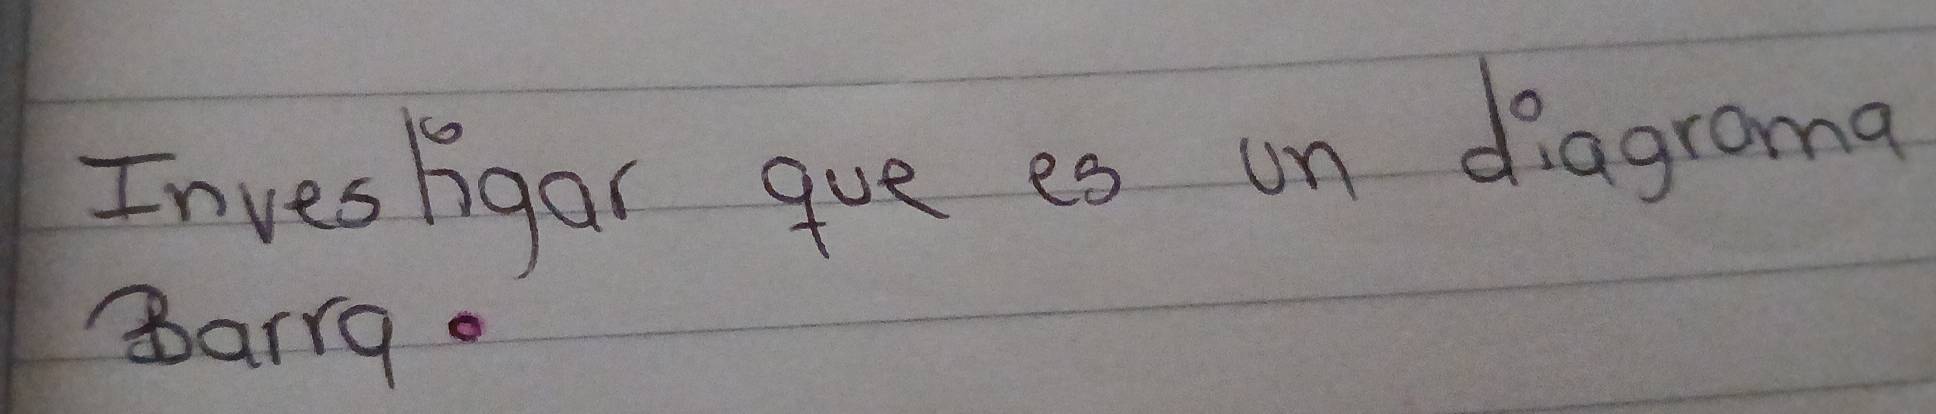 Investigar que es un diagrama
Barra.